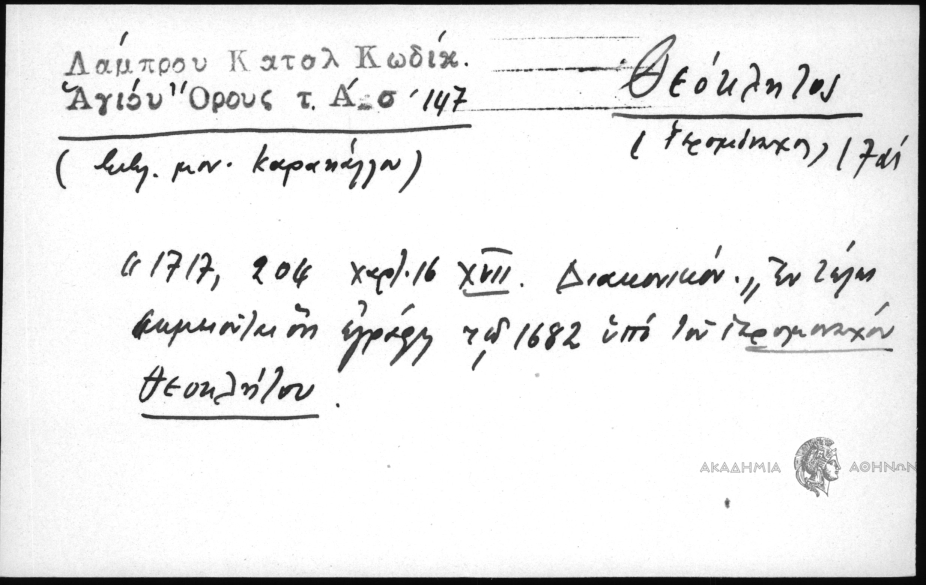 Λάμπρου Κατάλ Κωδίκ.
Ἁγίου Ὄρους τ. Ά σ. 147
Θεόκλητος
( μον. Καρακάλλου)
(Ἱερομόναχος) 17
« 1717, 204 χαρτ. 16 XVII. Διακονικόν. „ Ἐν τέλει
σημειοῦται ὅτι ἐγράφη τῷ 1682 ὑπό τοῦ ἱερομονάχου
Θεοκλήτου.
ΑΚΑΔΗΜΙΑ ΑΘΗΝΩΝ